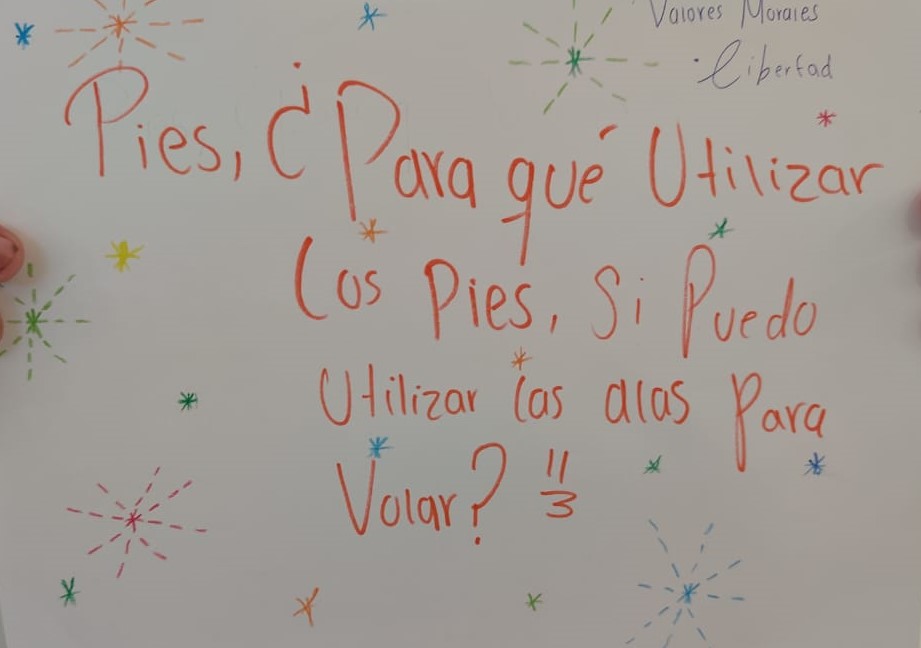 Valores Morales
·Libertad
Pies, ¿Para qué Utilizar
los Pies, Si Puedo
Utilizar las alas Para
Volar? "3